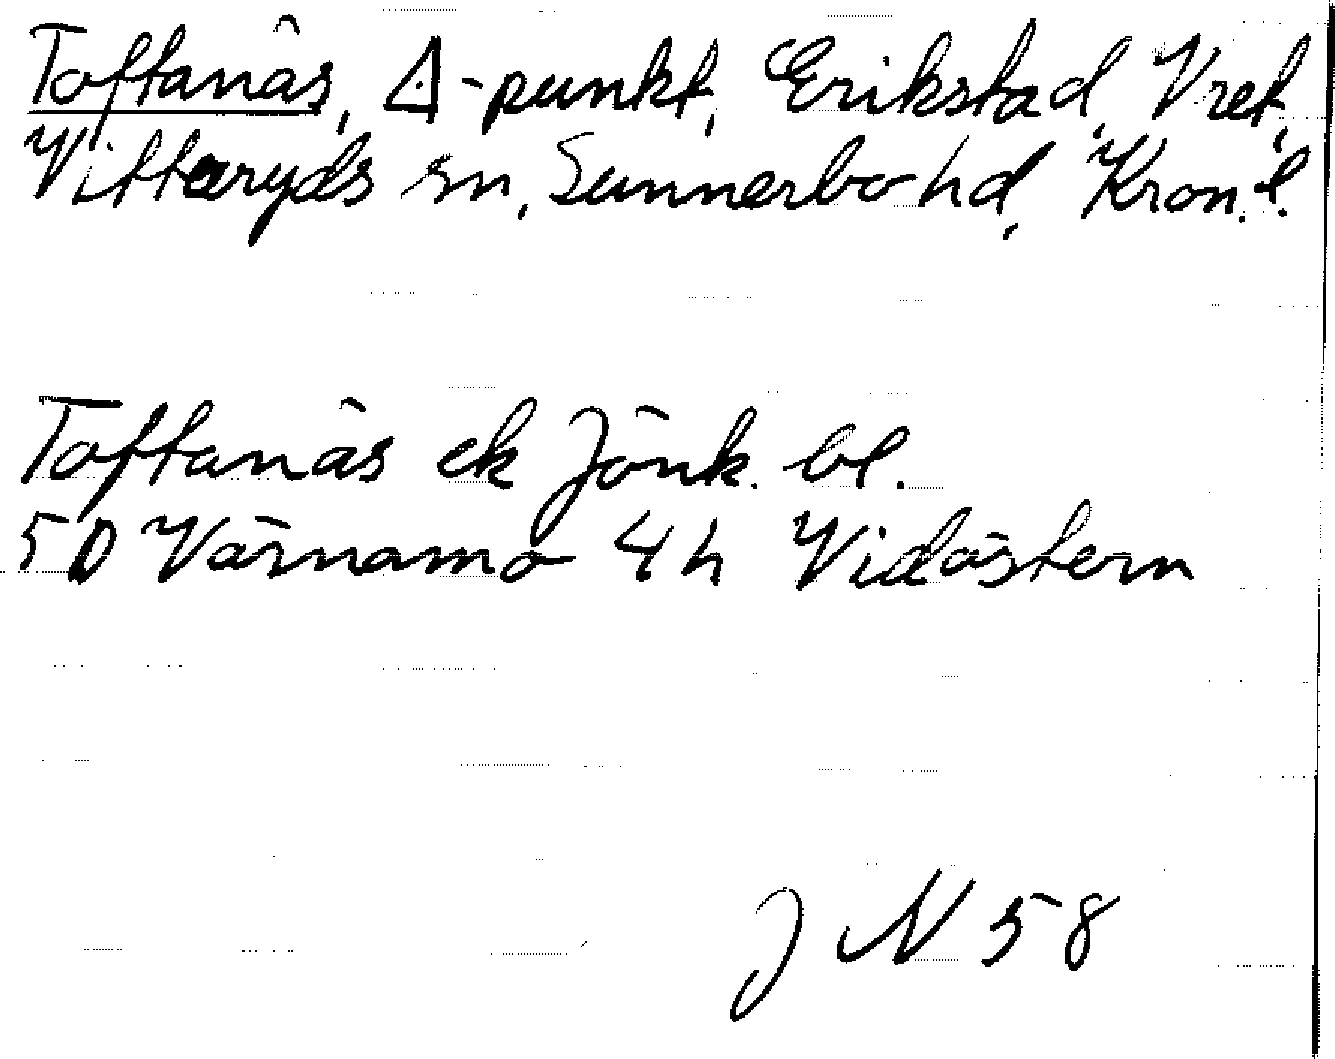 Toftanäs, Δ-punkt, Erikstad, Vret,
Vittaryds sn, Sunnerbo hd, Kron. l.
Toftanäs ek Jönk. bl.
5D Värnamo 4h Vidöstern
J N 58